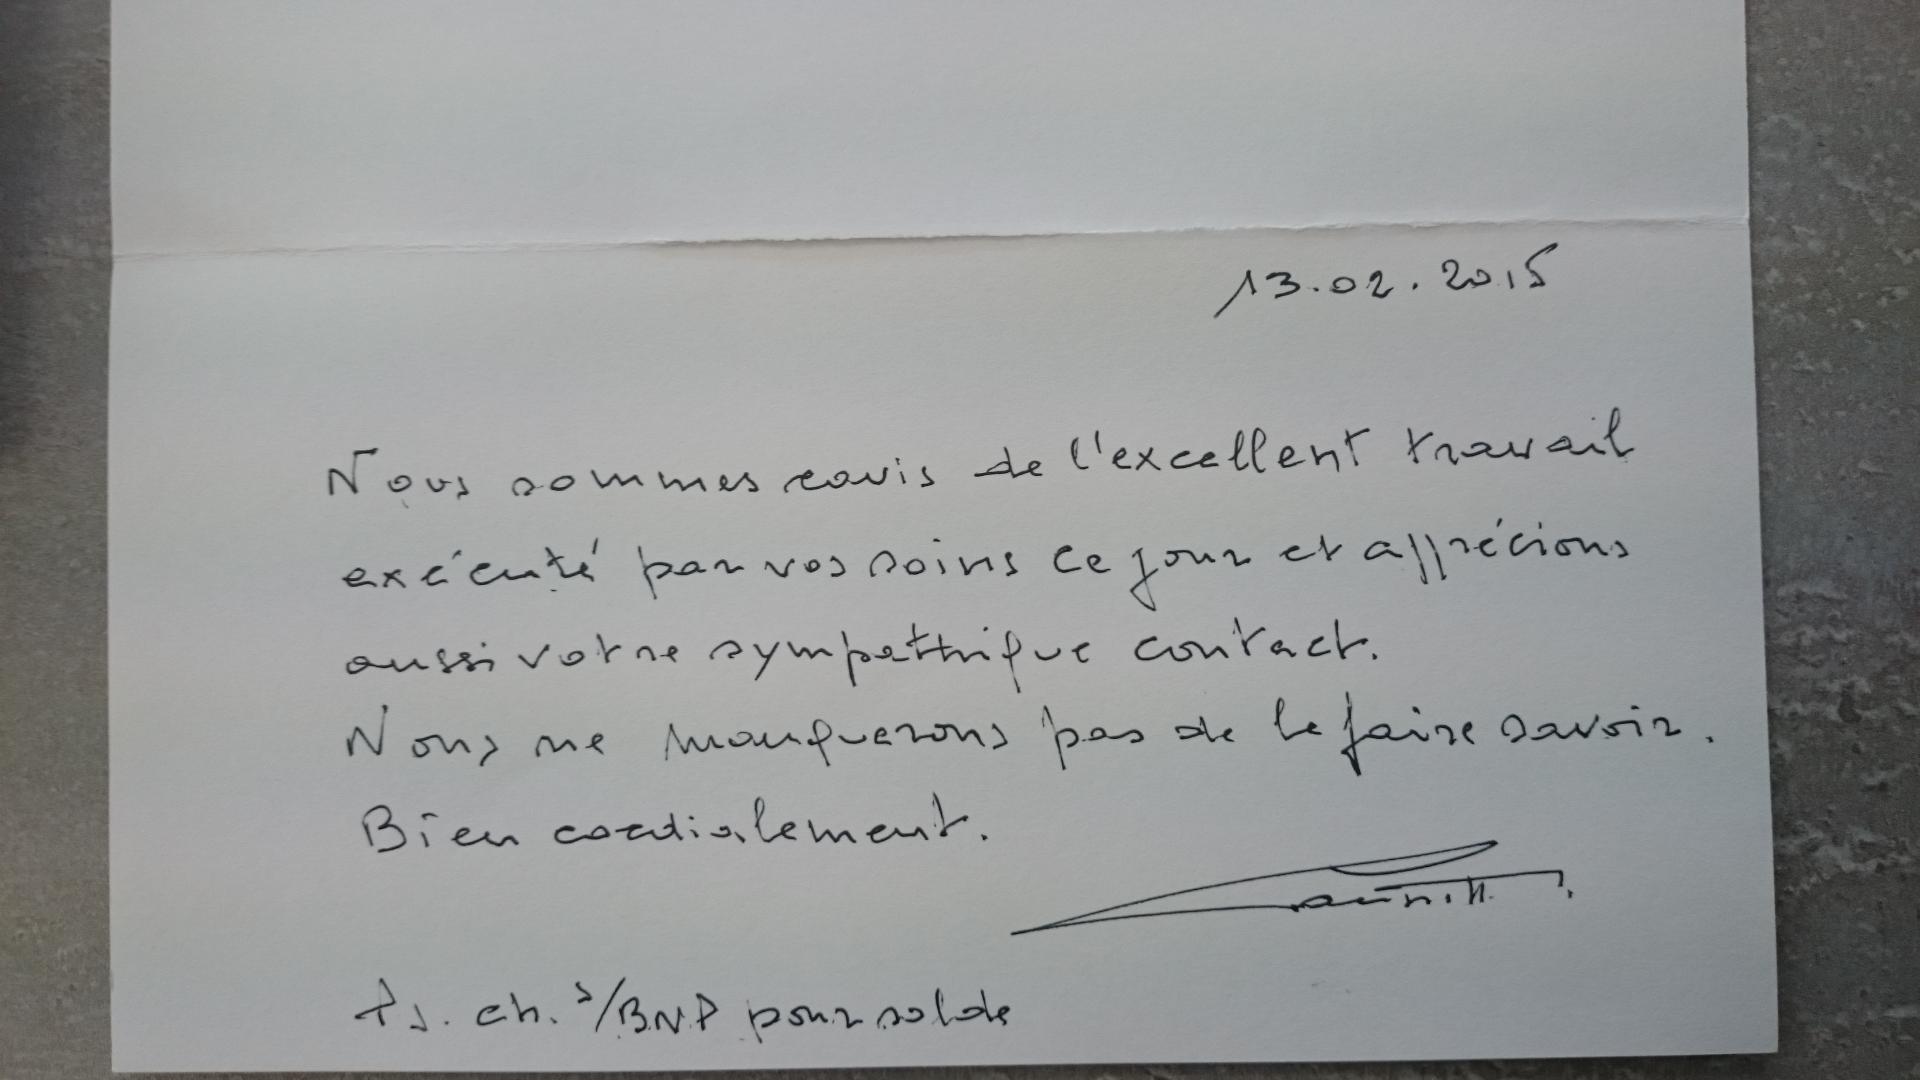 13.02.2015
Nous sommes ravis de l'excellent travail
exécuté par vos soins ce jour et apprécions
aussi votre sympathique contact.
Nous ne manquerons pas de le faire savoir.
Bien cordialement.
PJ. ch. s/BNP pour solde